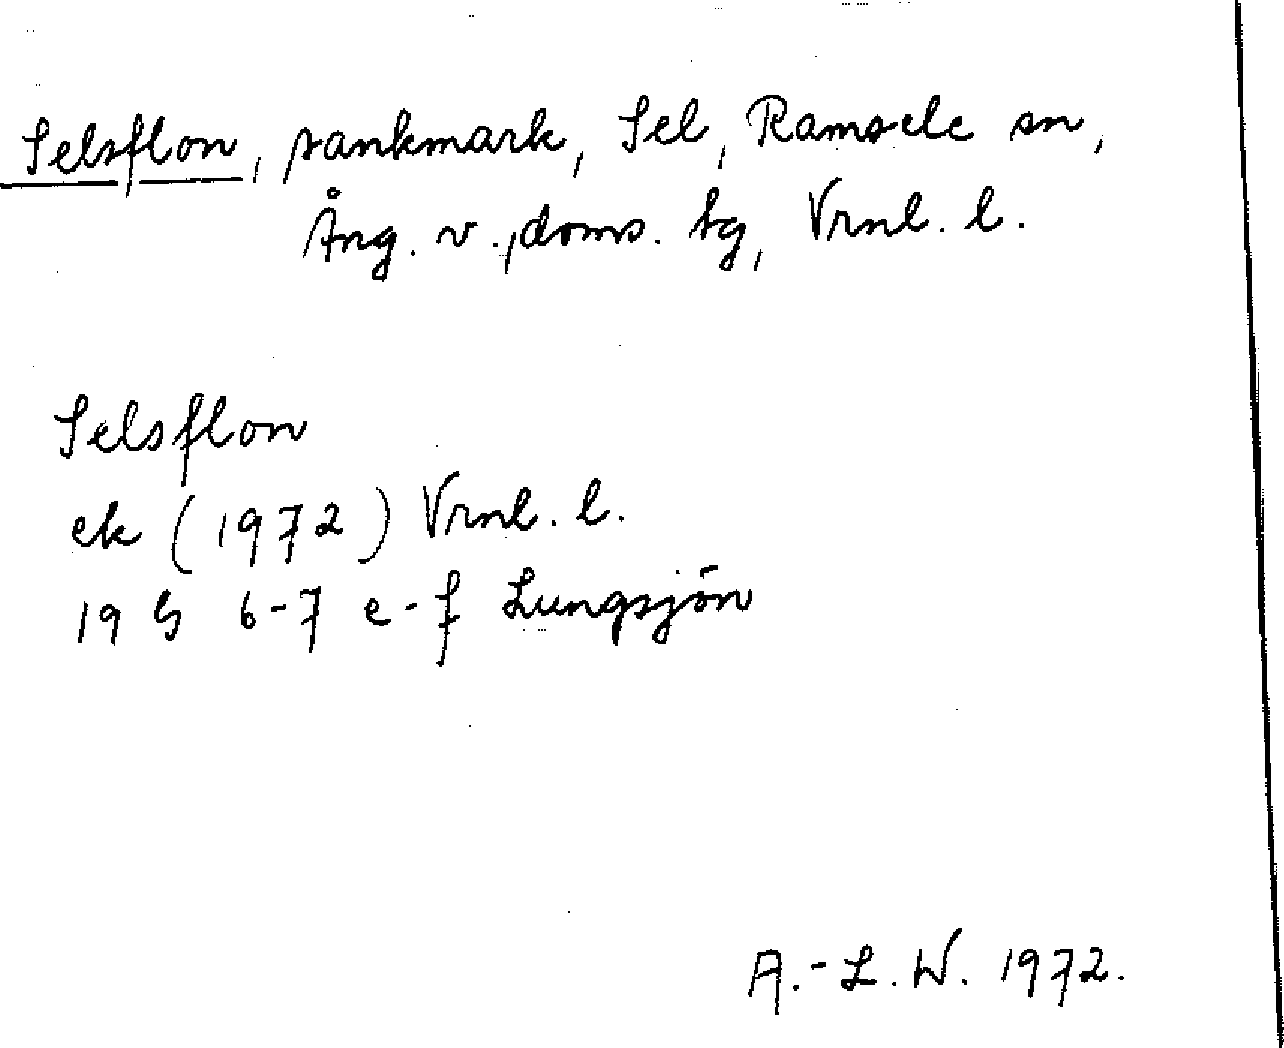 Selsflon, sankmark, Sel, Ramsele sn,
Ång. v., doms. tg, Vrnl. l.
Selsflon
ek (1972) Vrnl. l.
19 G 6-7 e-f Lungsjön
A.-L. W. 1972.